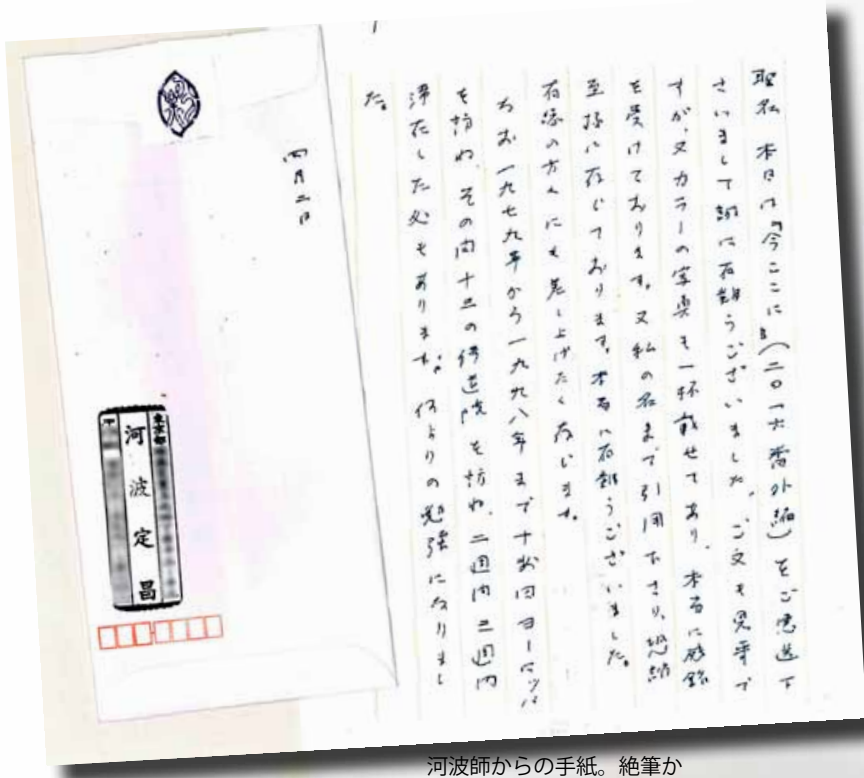 本日は『今ここに』(二〇一六番外編)をご恵送下
さいまして誠に有難うございました。ご文も見事で
すが、又カラーの写真も一杯載せてあり、本当に感銘
を受けております。又私の名まで引用下さり、恐縮
至極に存じております。本当に有難うございました。
有縁の方々にも差し上げたく存じます。
なお一九七九年から一九九八年まで十数回ヨーロッパ
を訪れ、その内十三の修道院を訪れ、二週間三週間
滞在した処もあります。何よりの勉強になりまし
た。
四月二日
東京都
河波定昌
〒
河波師からの手紙。絶筆か